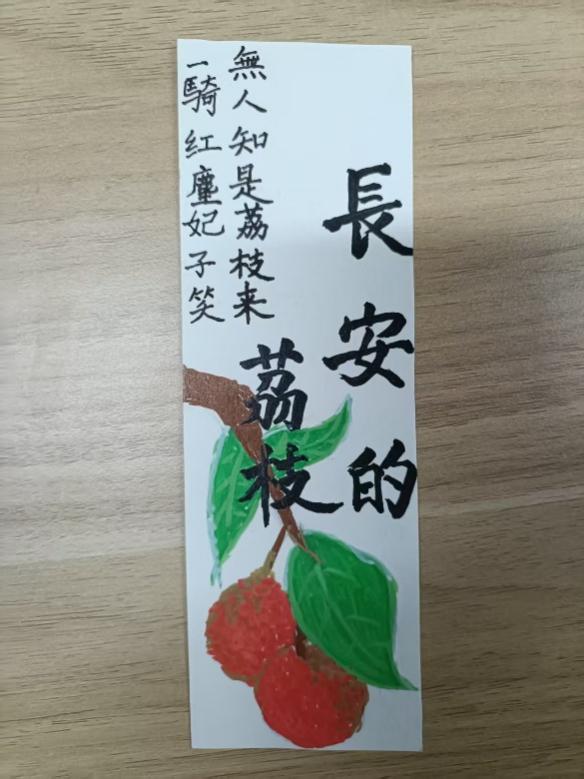 長安的
荔枝
無人知是荔枝来
一騎红塵妃子笑